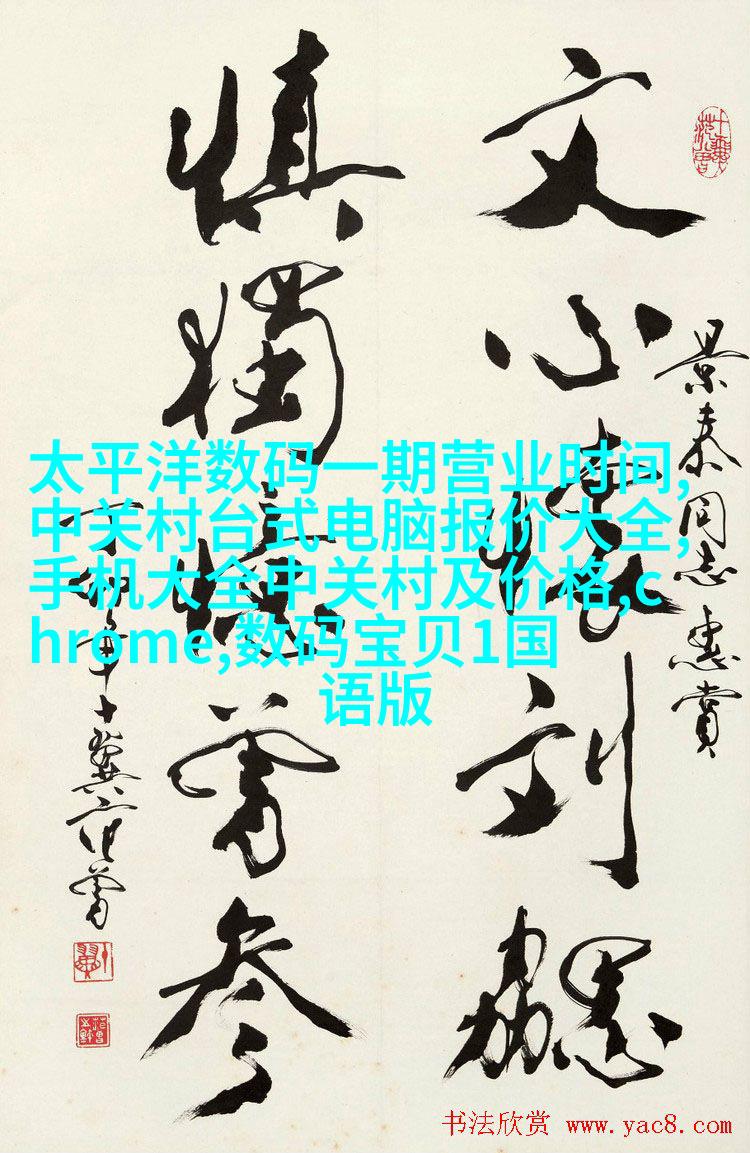 景泰同志惠賞
文心懷刘勰
慎獨曾参
丁卯年十翼范曾
太平洋数码一期营业时间,
中关村台式电脑报价大全,
手机大全中关村及价格,c
hrome,数码宝贝1国
语版
书法欣赏 www.yac8.com